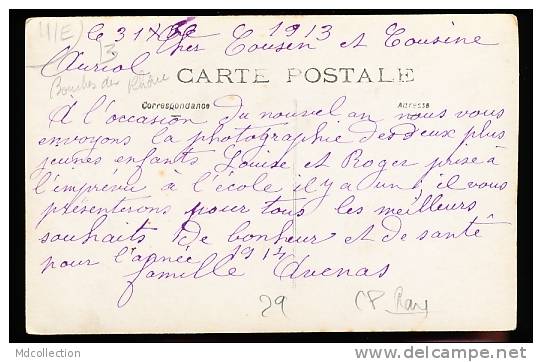 Le 31 Xbre 1913
Auriol Cher Cousin et Cousine
Bouches du Rhône
CARTE POSTALE
Correspondance Adresse
A l'occasion du nouvel an nous vous
envoyons la photographie des deux plus
jeunes enfants Louise et Roger prise à
l'imprévu à l'école il y a un il vous
présenterons pour tous les meilleurs
souhaits de bonheur et de santé
pour l'année 1914
famille Avenas
29 CP Rare
Mdcollection
delcampe.net